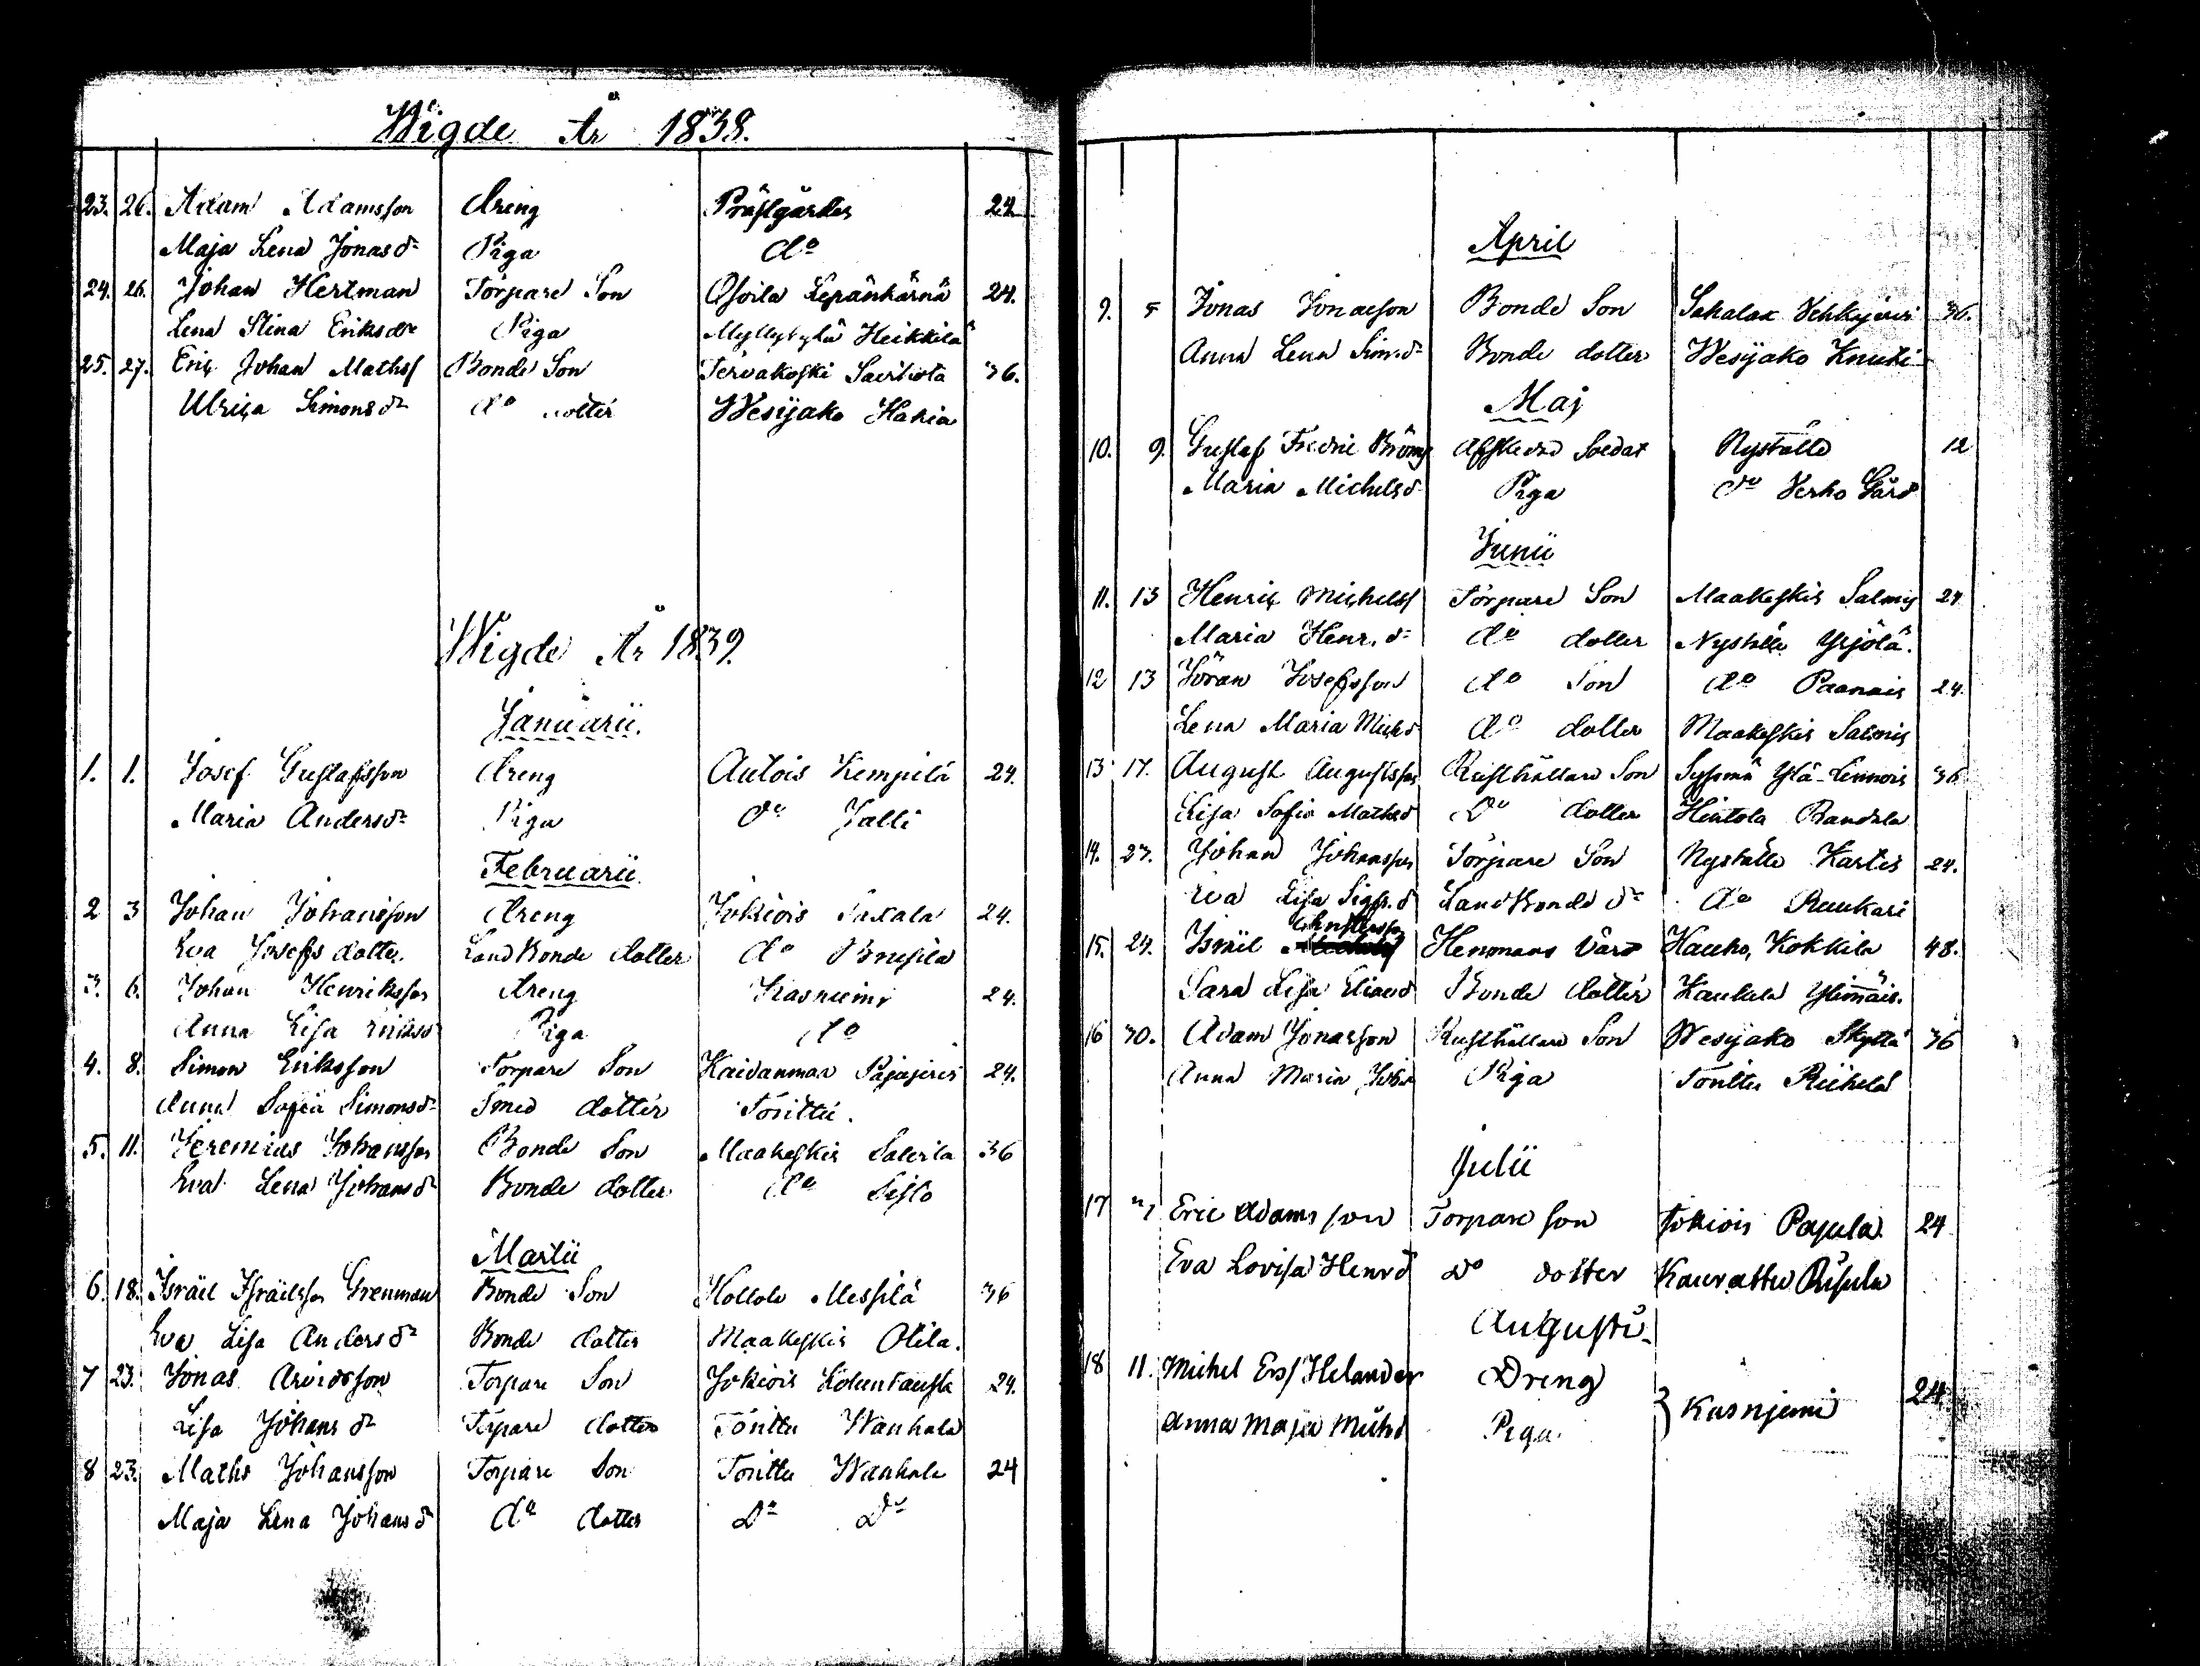 Wigde År 1838.
23. 26. Adam Adamsson Dreng Prästgården 24.
Maja Lena Jonas dr Piga do
24. 26. Johan Hertman Torpare Son Osoila Lepänkärnä 24.
Lena Stina Eriks dr Piga Myllykylä Heikkilä
25. 27. Eric Johan Mathss Bonde Son Tervakoski 36.
Ulrica Simons dr do dotter Wesijako Hakia
Wigde År 1839.
Januarii.
1. 1. Josef Gustafsson Dreng Autois Kempilä 24.
Maria Anders dr Piga do Jalli
Februarii.
2 3 Johan Johansson Dreng Jokiois Saxala 24.
Eva Josefs dotter. Land Bonde dotter do
3. 6. Johan Henriksson Dreng Kasniemi 24.
Anna Lisa Piga do
4. 8. Simon Eriksson Torpare Son Kaidanmaa Pajajervi 24.
Anna Sofia Simons dr Smed dotter Torittu.
5. 11. Jeremias Johansson Bonde Son Maakeskis Salerla 36
Eva Lena Johans dr Bonde dotter do Sislo
Martii
6. 18. Israël Israëlsson Grenman Bonde Son Hollola Messilä 36
Eva Lisa Anders dr Bonde dotter Maakeskis Olila.
7 23. Jonas Arvidsson Torpare Son Jokiois 24.
Lisa Johans dr Torpare dotter Torittu Wanhala
8 23. Maths Johansson Torpare Son Torittu Wanhala 24
Maja Lena Johans dr do dotter Do Do
April
9. 5 Jonas Jonasson Bonde Son Vehkajervi 36.
Anna Lena Sim. dr Bonde dotter Wesijako Knuti
Maj
10. 9. Gustaf Fredric Afskedad Soldat Nystölä 12
Maria Michels d Piga do Verho Gård
Junii
11. 13 Henric Michelss Torpare Son Maakeskis Salmis 24
Maria Henr. dr do dotter Nystölä Yrjölä.
12 13 Jöran Josefsson do Son do Paanais 24.
Lena Maria Mich d do dotter Maakeskis Salmis
13 17. August Augustsson Rusthållare Son Sysmä Ylä-Lennois 36
Lisa Sofia Maths d Do dotter Hintola Randala
14. 23. Johan Johansson Torpare Son Nystölä Kartis 24.
Eva Lisa Sigfr. d Land Bonde dr do Ruukari
Christersson
15. 24. Israël Hemmans Våra Hauho, Kokkila 48.
Sara Lisa Elias d Bonde dotter Kaukela Ylimäis.
16 30. Adam Jonasson Rusthållare Son Wesijako Skyttä 36
Anna Maria Joh d Piga Torittu Riihelä
Julii
17 Eric Adamsson Torpare son Jokiois Papula 24
Eva Lovisa Henr d Do dotter Kaurattu
Augusti.
18 11. Michel Ers/ Helander Dreng
Anna Maja Mich d Piga } Kasnjemi 24